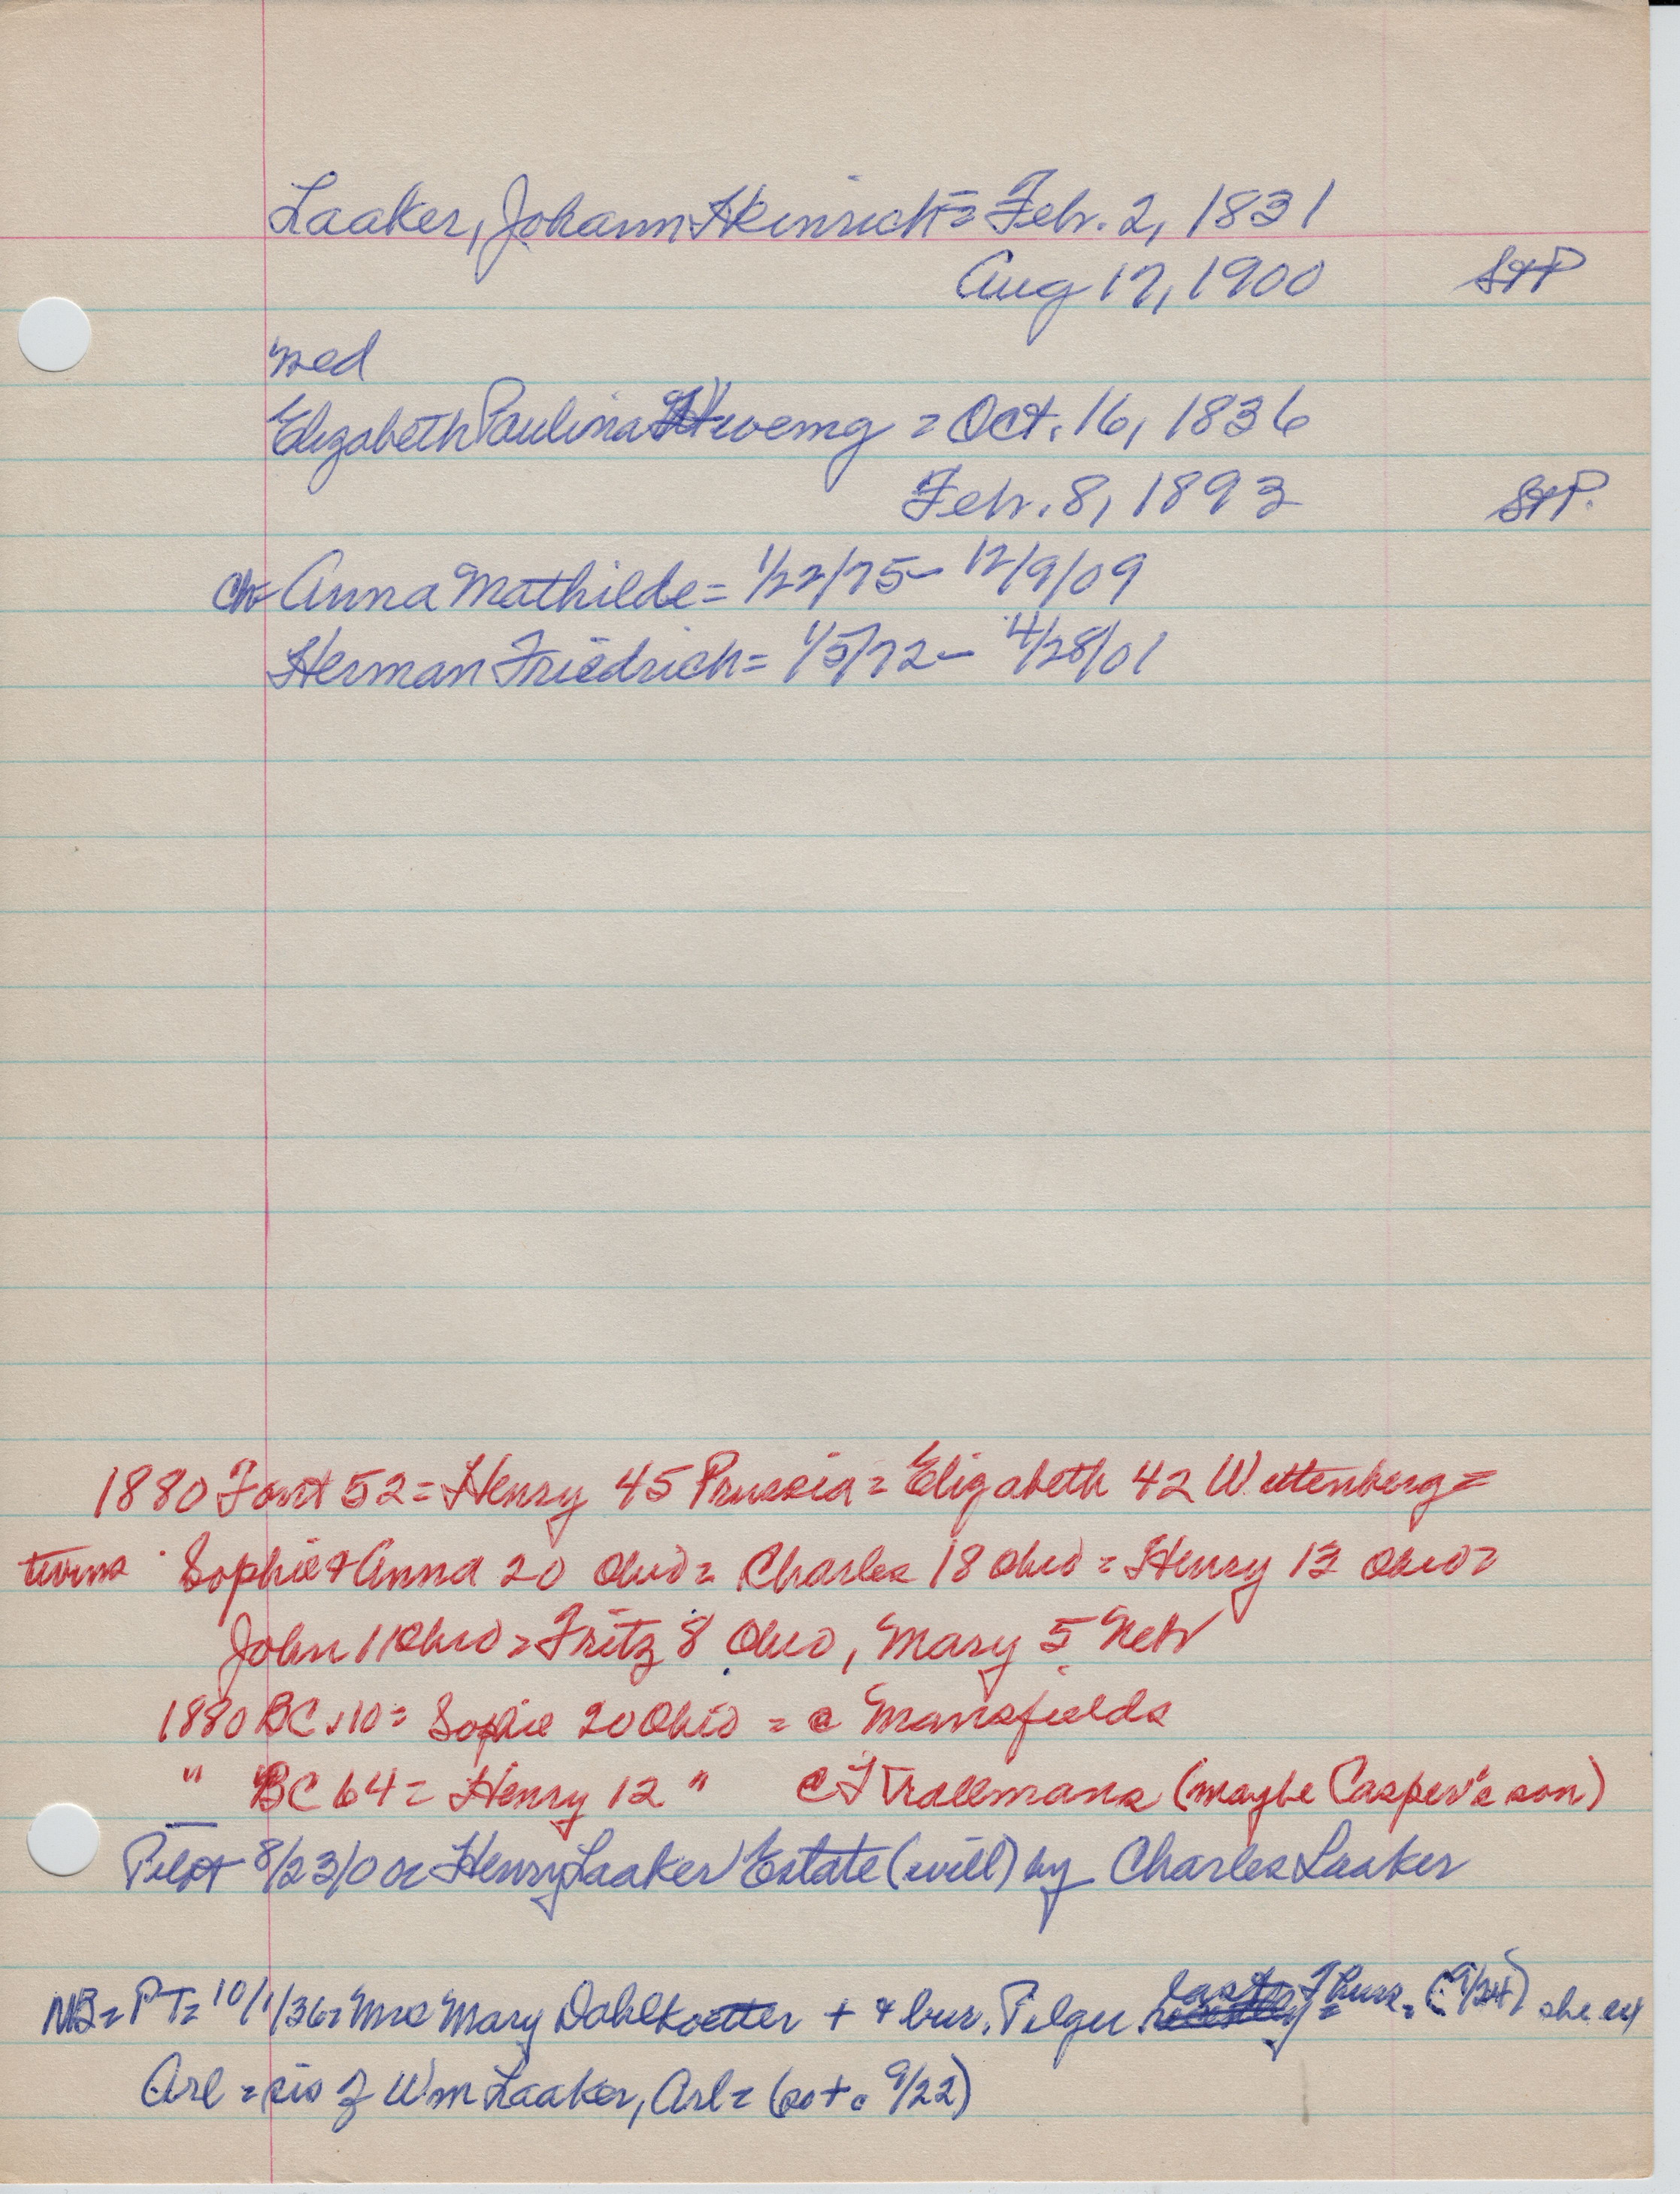 Laaker, Johann Heinrich = Feb. 2, 1831
Aug 17, 1900 StP
med
Elizabeth Paulina = Oct. 16, 1836
Feb. 8, 1893 StP.
ch= Anna Mathilde = 1/22/75 - 12/9/09
Herman Friedrich = 1/5/72 - 4/28/01
1880 Font 52 = Henry 45 Prussia = Elizabeth 42 Wittenberg =
twins Sophie + Anna 20 Ohio = Charles 18 Ohio = Henry 13 Ohio =
John 11 Ohio = Fritz 8 Ohio, Mary 5 Neb
1880 BC 10 = Sophie 20 Ohio = @ Mansfields
" BC 64 = Henry 12 " @ Trallmans (maybe Casper's son)
Pilot 8/23/0 Henry Laaker Estate (will) by Charles Laaker
NB = PT = 10/1/36 = Mrs Mary Dahlkoetter + & bur. Pilger last Thurs. = (9/24) she
Arl = sis of Wm Laaker, Arl = 9/22)